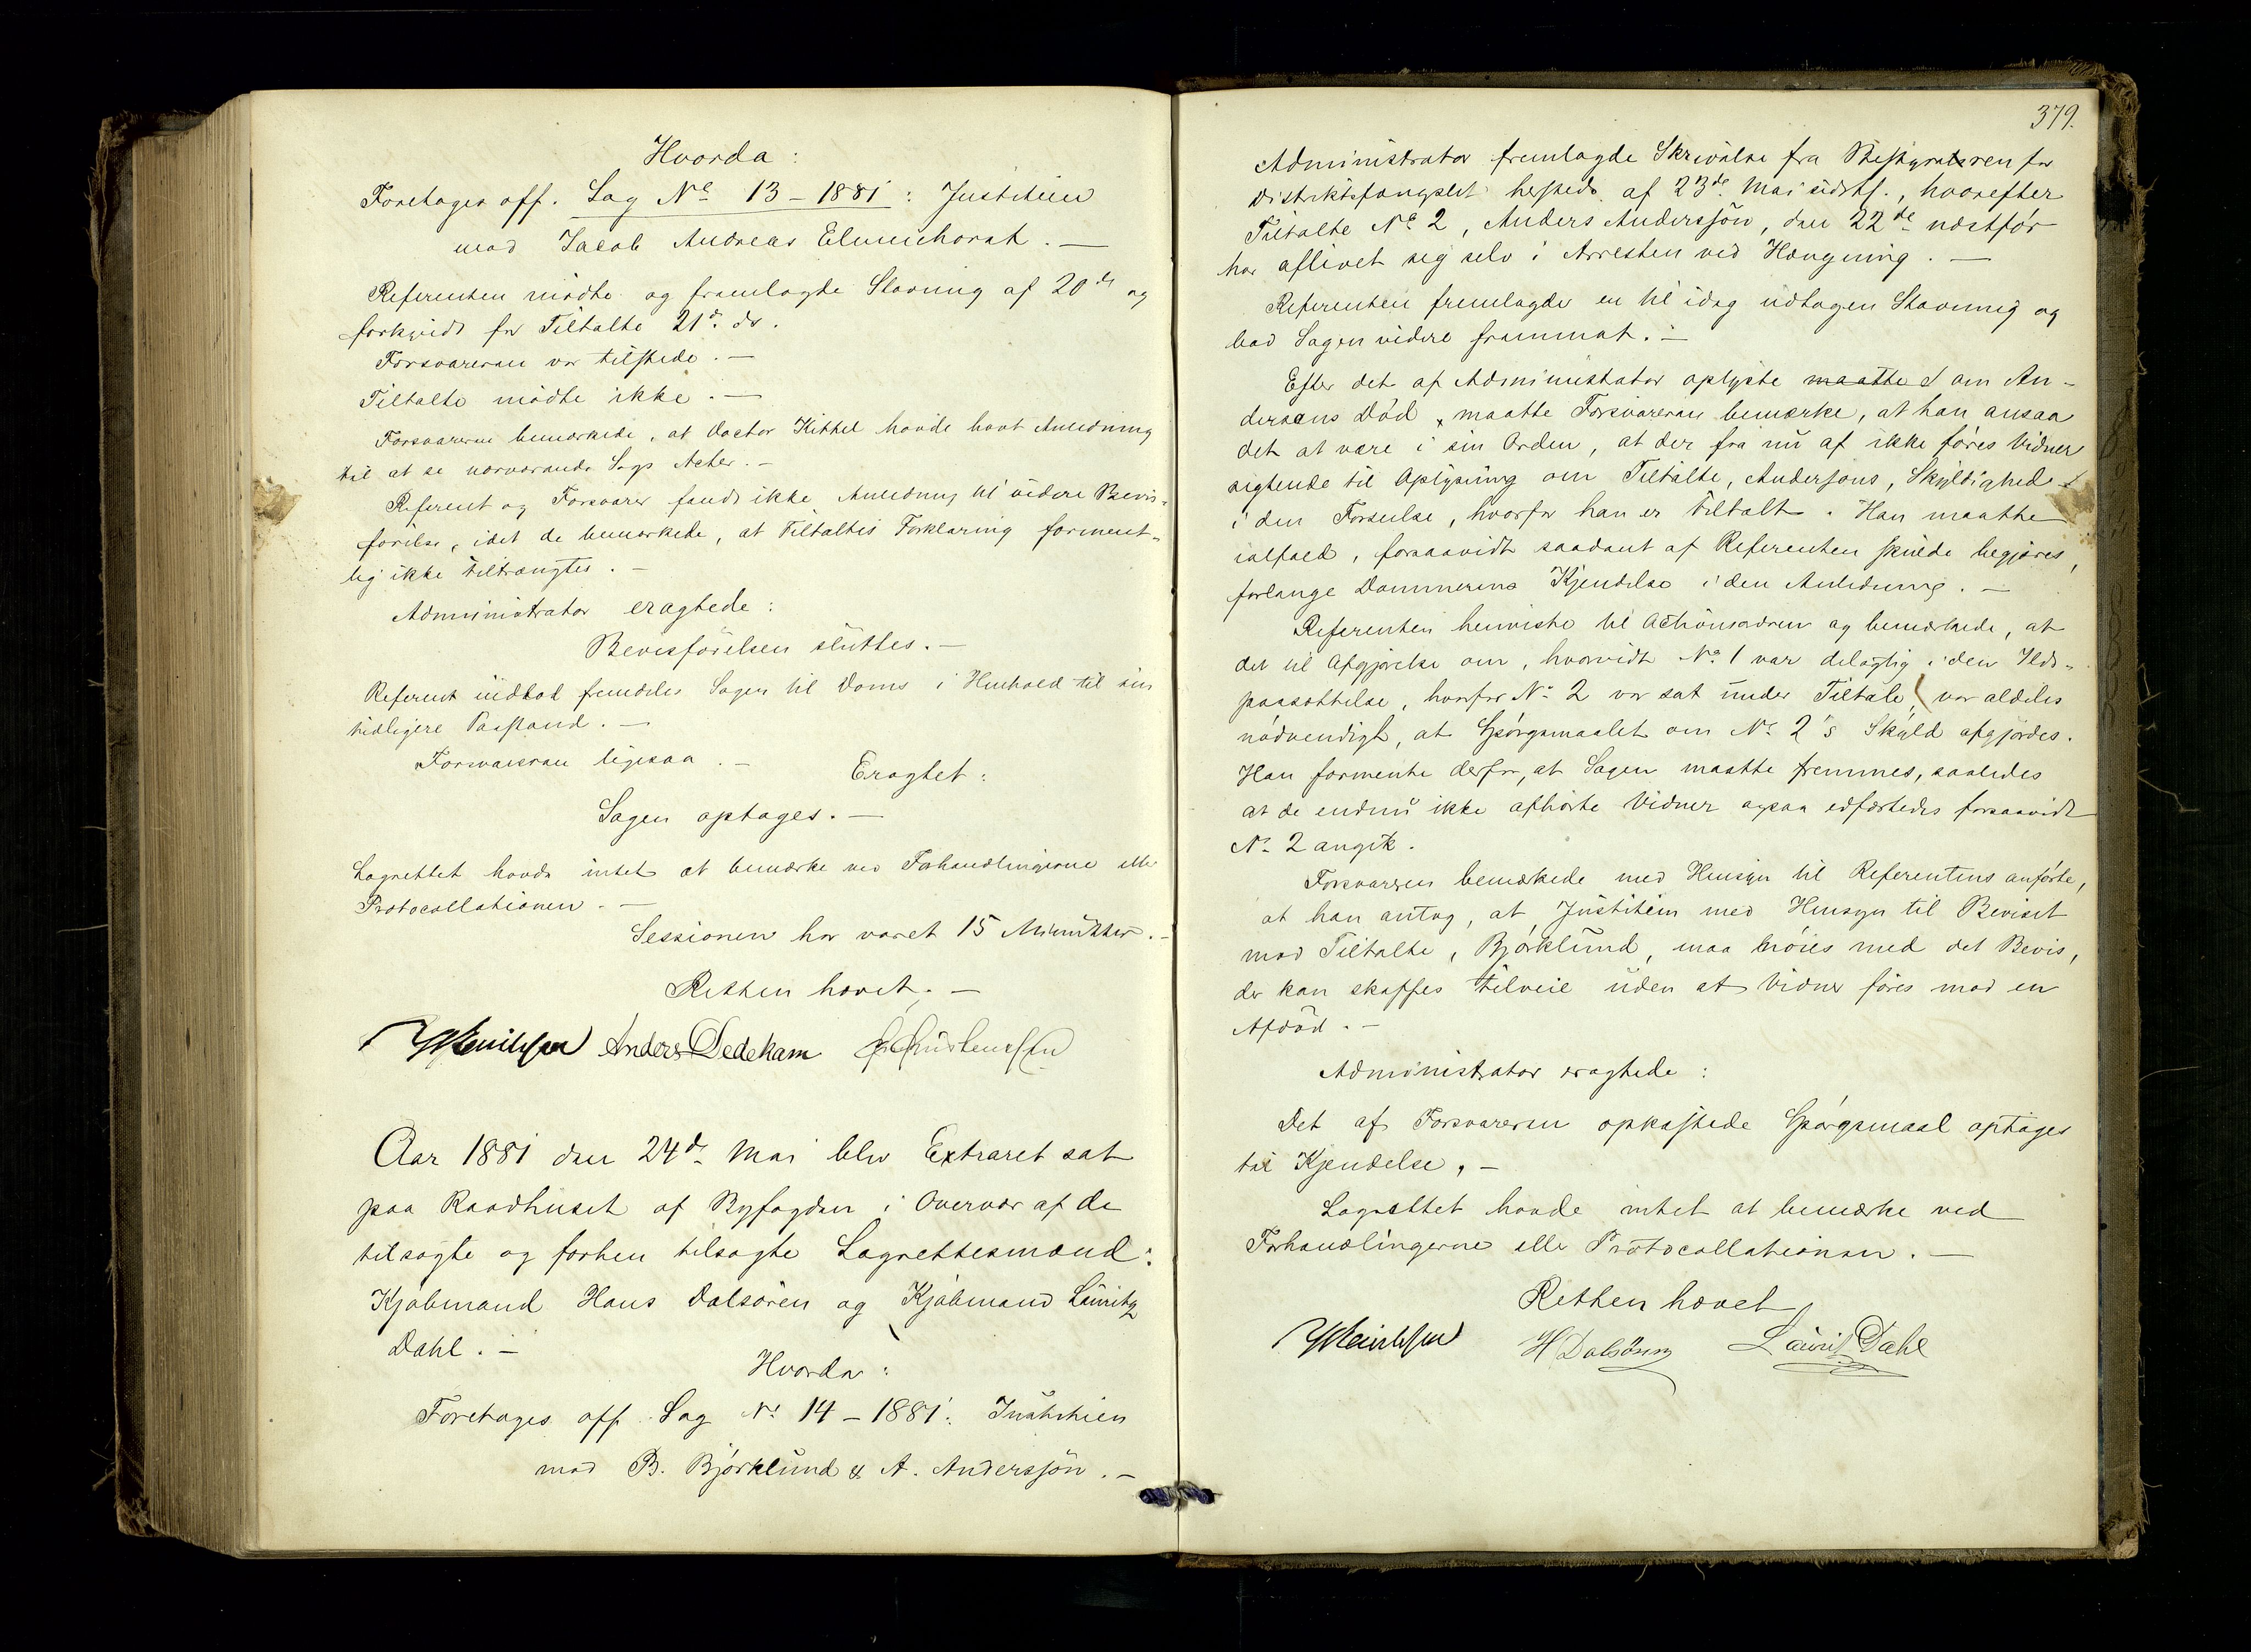 Hvorda:
Foretages off. Sag No 13 - 1881: Justitien
mod Jacob Andreas Elmenhorst. —
Referenten mødte og fremlagde Stævning af 20de og
forkyndt for Tiltalte 21de ds.
Forsvareren var tilstede. —
Tiltalte mødte ikke. —
Forsvareren bemærkede, at Doctor Kittel havde havt Anledning
til at se nærværende Sags Acter. —
Referent og Forsvarer fandt ikke Anledning til videre Bevis-
førelse, idet de bemærkede, at Tiltaltes Forklaring forment-
lig ikke tiltrængtes. —
Administrator eragtede:
Bevisførelsen sluttes. —
Referent indlod fremdeles Sagen til Doms i Henhold til sin
tidligere Paastand. —
Forsvareren ligesaa. —
Eragtet:
Sagen optages. —
Lagrettet havde intet at bemærke ved Forhandlingerne eller
Protocollationen. —
Sessionen har varet 15 Minutter. —
Retten hævet. —
Anders Dedekam
Aar 1881 den 24de Mai blev Extraret sat
paa Raadhuset af Byfogden i Overvær af de
tilsagte og forhen tilsagte Lagrettesmænd:
Kjøbmand Hans Dalsøren og Kjøbmand Lauritz
Dahl. —
Hvorda:
Foretages off. Sag No 14 - 1881: Justitien
mod B. Bjørklund & A. Anderssøn. —
379.
Administrator fremlagde Skrivelse fra Bestyrelsen for
Distriktsfængslet hersteds af 23de Mai sidstl., hvorefter
Tiltalte No 2, Anders Anderssøn, den 22de næstfør
har aflivet sig selv i Arresten ved Hængning. —
Referenten fremlagde en til idag udtagen Stævning og
bad Sagen videre fremmet. —
Efter det af Administrator oplyste maatte om An-
dersens Død, maatte Forsvareren bemærke, at han ansaa
det at være i sin Orden, at der fra nu af ikke føres Vidner
sigtende til Oplysning om Tiltalte, Andersøns, Skyldighed
i den Forseelse, hvorfor han er tiltalt. Han maatte
ialfald, forsaavidt saadant af Referenten skulde begjæres,
forlange Dommerens Kjendelse i den Anledning. —
Referenten henviste til Actionsordren og bemærkede, at
det til Afgjørelse om, hvorvidt No 1 var delagtig i den Ilds-
paasættelse, hvorfor No 2 var sat under Tiltale, var aldeles
nødvendigt, at Spørgsmaalet om No 2's Skyld afgjordes.
Han formente derfor, at Sagen maatte fremmes, saaledes
at de endnu ikke afhørte Vidner ogsaa edfæstedes forsaavidt
No 2 angik.
Forsvareren bemærkede med Hensyn til Referentens anførte,
at han antog, at Justitien med Hensyn til Beviset
mod Tiltalte, Bjørklund, maa nøies med det Bevis,
der kan skaffes tilveie uden at Vidner føres mod en
Afdød. —
Administrator eragtede:
Det af Forsvareren opkastede Spørgsmaal optages
til Kjendelse. —
Lagrettet havde intet at bemærke ved
Forhandlingerne eller Protocollationen. —
Retten hævet
H Dalsøren Laurits Dahl